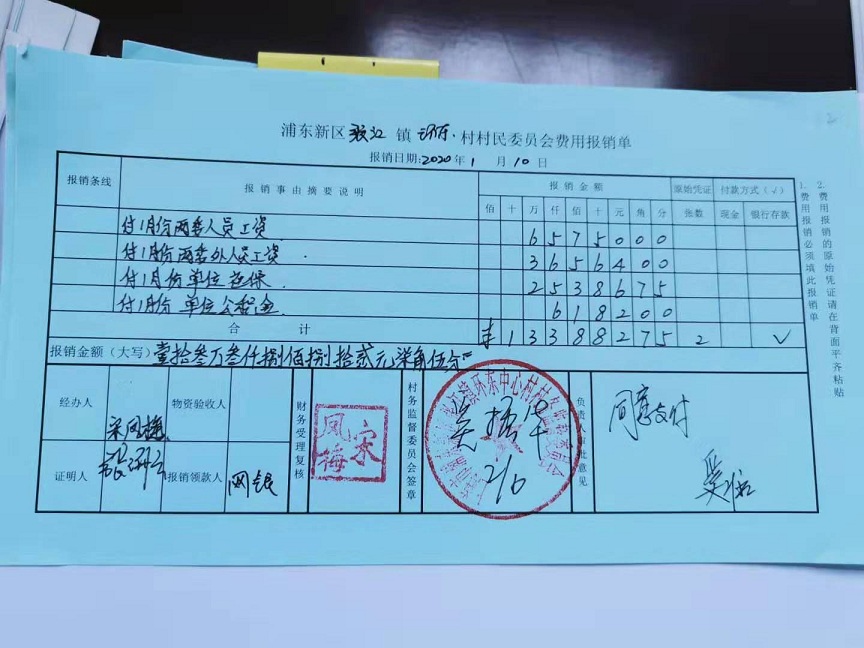 浦东新区张江镇环东村村民委员会费用报销单
报销日期:2020年1月10日
报销条线 报销事由摘要说明 报销金额 原始凭证 付款方式(√)
佰 十 万 仟 佰 十 元 角 分 张数 现金 银行存款
付1月份两委人员工资 6 5 7 5 0 0 0
付1月份两委外人员工资 3 6 5 6 4 0 0
付1月份单位社保 2 5 3 8 6 7 5
付1月份单位公积金 6 1 8 2 0 0
合计 ¥ 1 3 3 8 8 2 7 5 2 √
报销金额(大写)壹拾叁万叁仟捌佰捌拾贰元柒角伍分
经办人 宋凤梅
物资验收人
证明人
报销领款人 网银
财务受理复核
宋凤梅
村务监督委员会签章
环东中心村村务监督委员会
2/0
负责人审批意见
同意支付
1.费用报销必须填此报销单
2.费用报销的原始凭证请在背面平齐粘贴